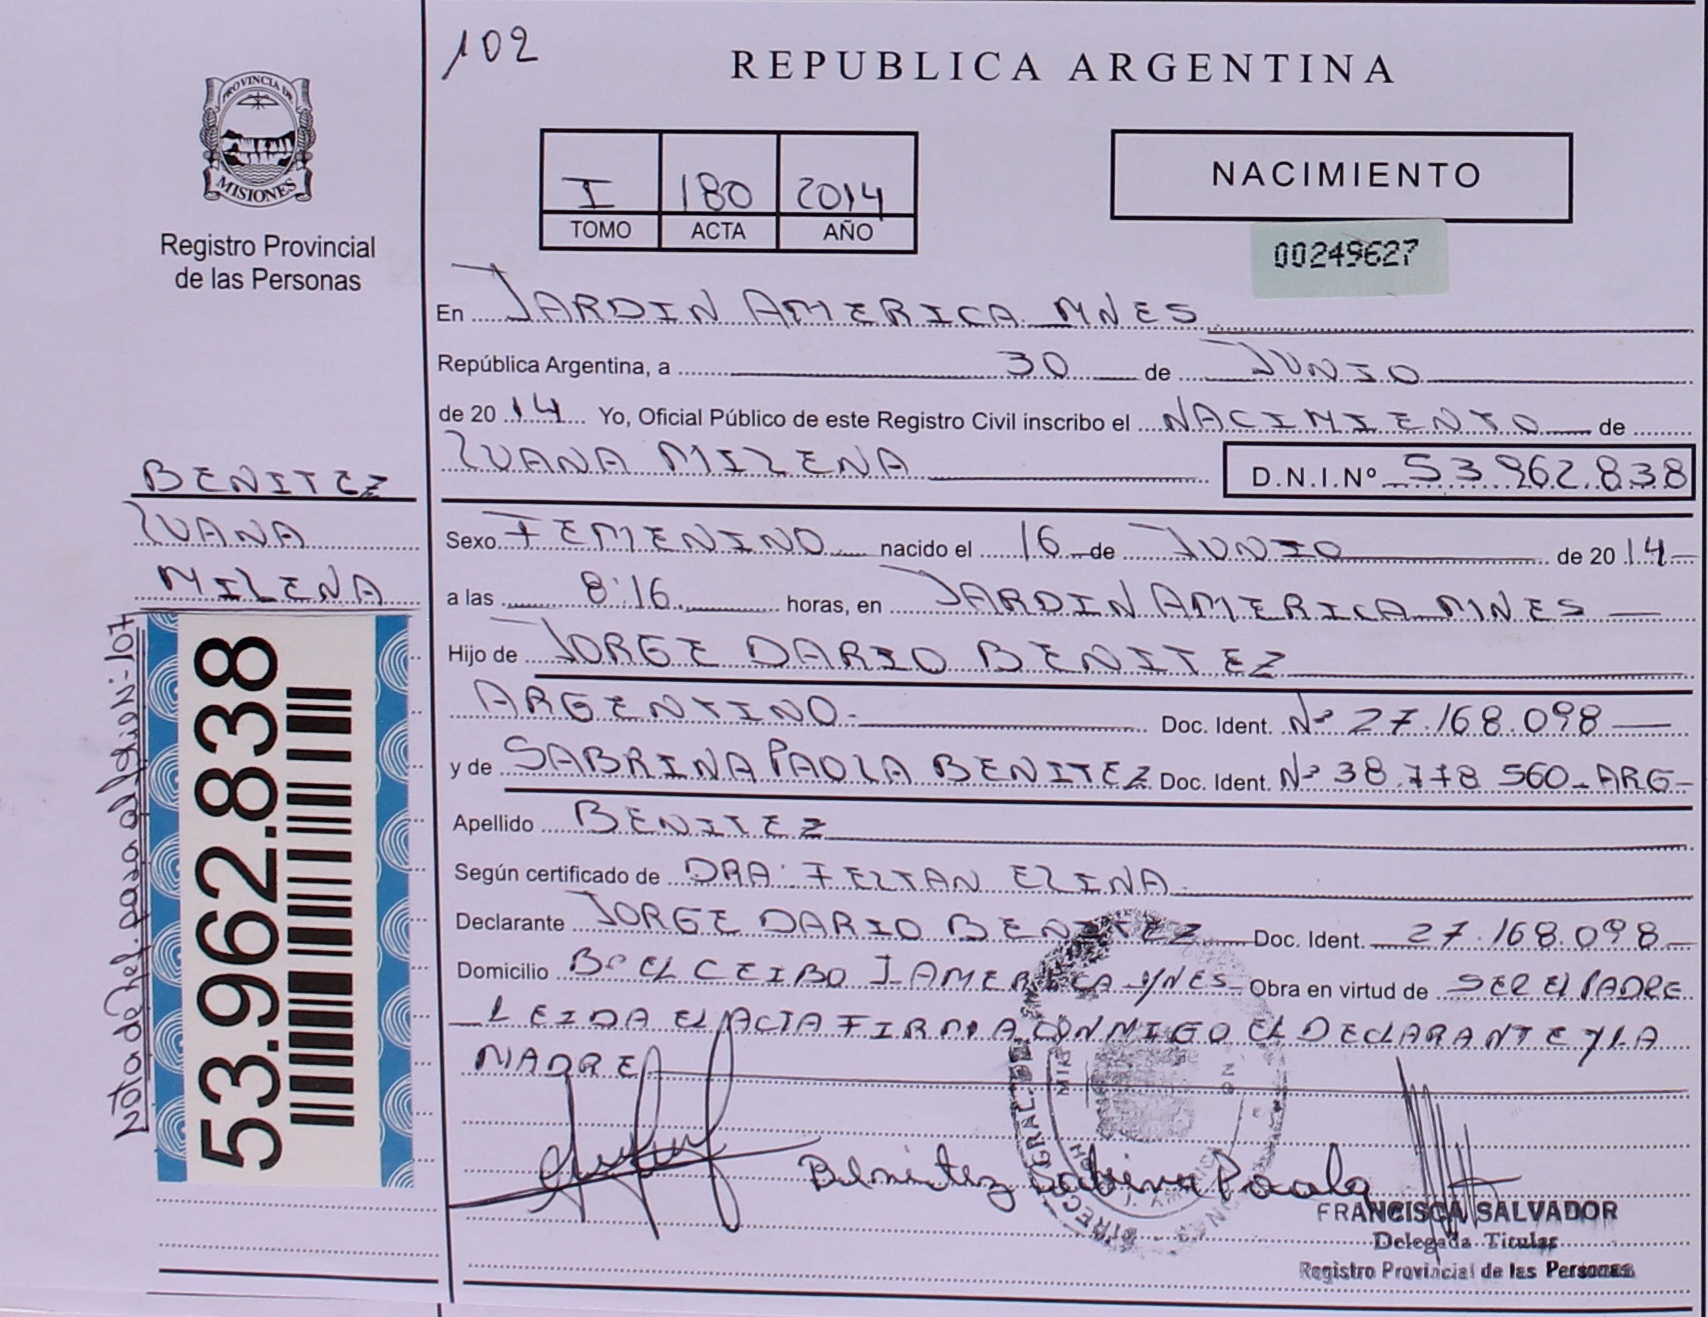 102
REPUBLICA ARGENTINA
PROVINCIA DE
MISIONES
Registro Provincial
de las Personas
I 180 2014
TOMO ACTA AÑO
NACIMIENTO
00249627
En JARDIN AMERICA MNES
República Argentina, a 30 de JUNIO
de 20 14 Yo, Oficial Público de este Registro Civil inscribo el NACIMIENTO de
LUANA MILENA D.N.I.Nº 53.962.838
BENITEZ
LUANA
MILENA
Sexo FEMENINO nacido el 16 de JUNIO de 20 14
a las 8:16 horas, en JARDIN AMERICA MNES
Hijo de JORGE DARIO BENITEZ
ARGENTINO.- Doc. Ident. Nº 27.168.098
y de SABRINA PAOLA BENITEZ Doc. Ident. Nº 38.778 560-ARG-
Apellido BENITEZ
Según certificado de DRA: FELTAN ELINA
Declarante JORGE DARIO BENITEZ Doc. Ident. 27.168.098
Domicilio Bº EL CEIBO J. AMERICA MNES- Obra en virtud de SER EL PADRE
LEIDA EL ACTA FIRMA CONMIGO EL DECLARANTE Y LA
MADRE
53.962.838
Nota de Ref. pasa al folio: 107
Benitez Sabrina Paola
FRANCISCA SALVADOR
Delegada Titular
Registro Provincial de las Personas